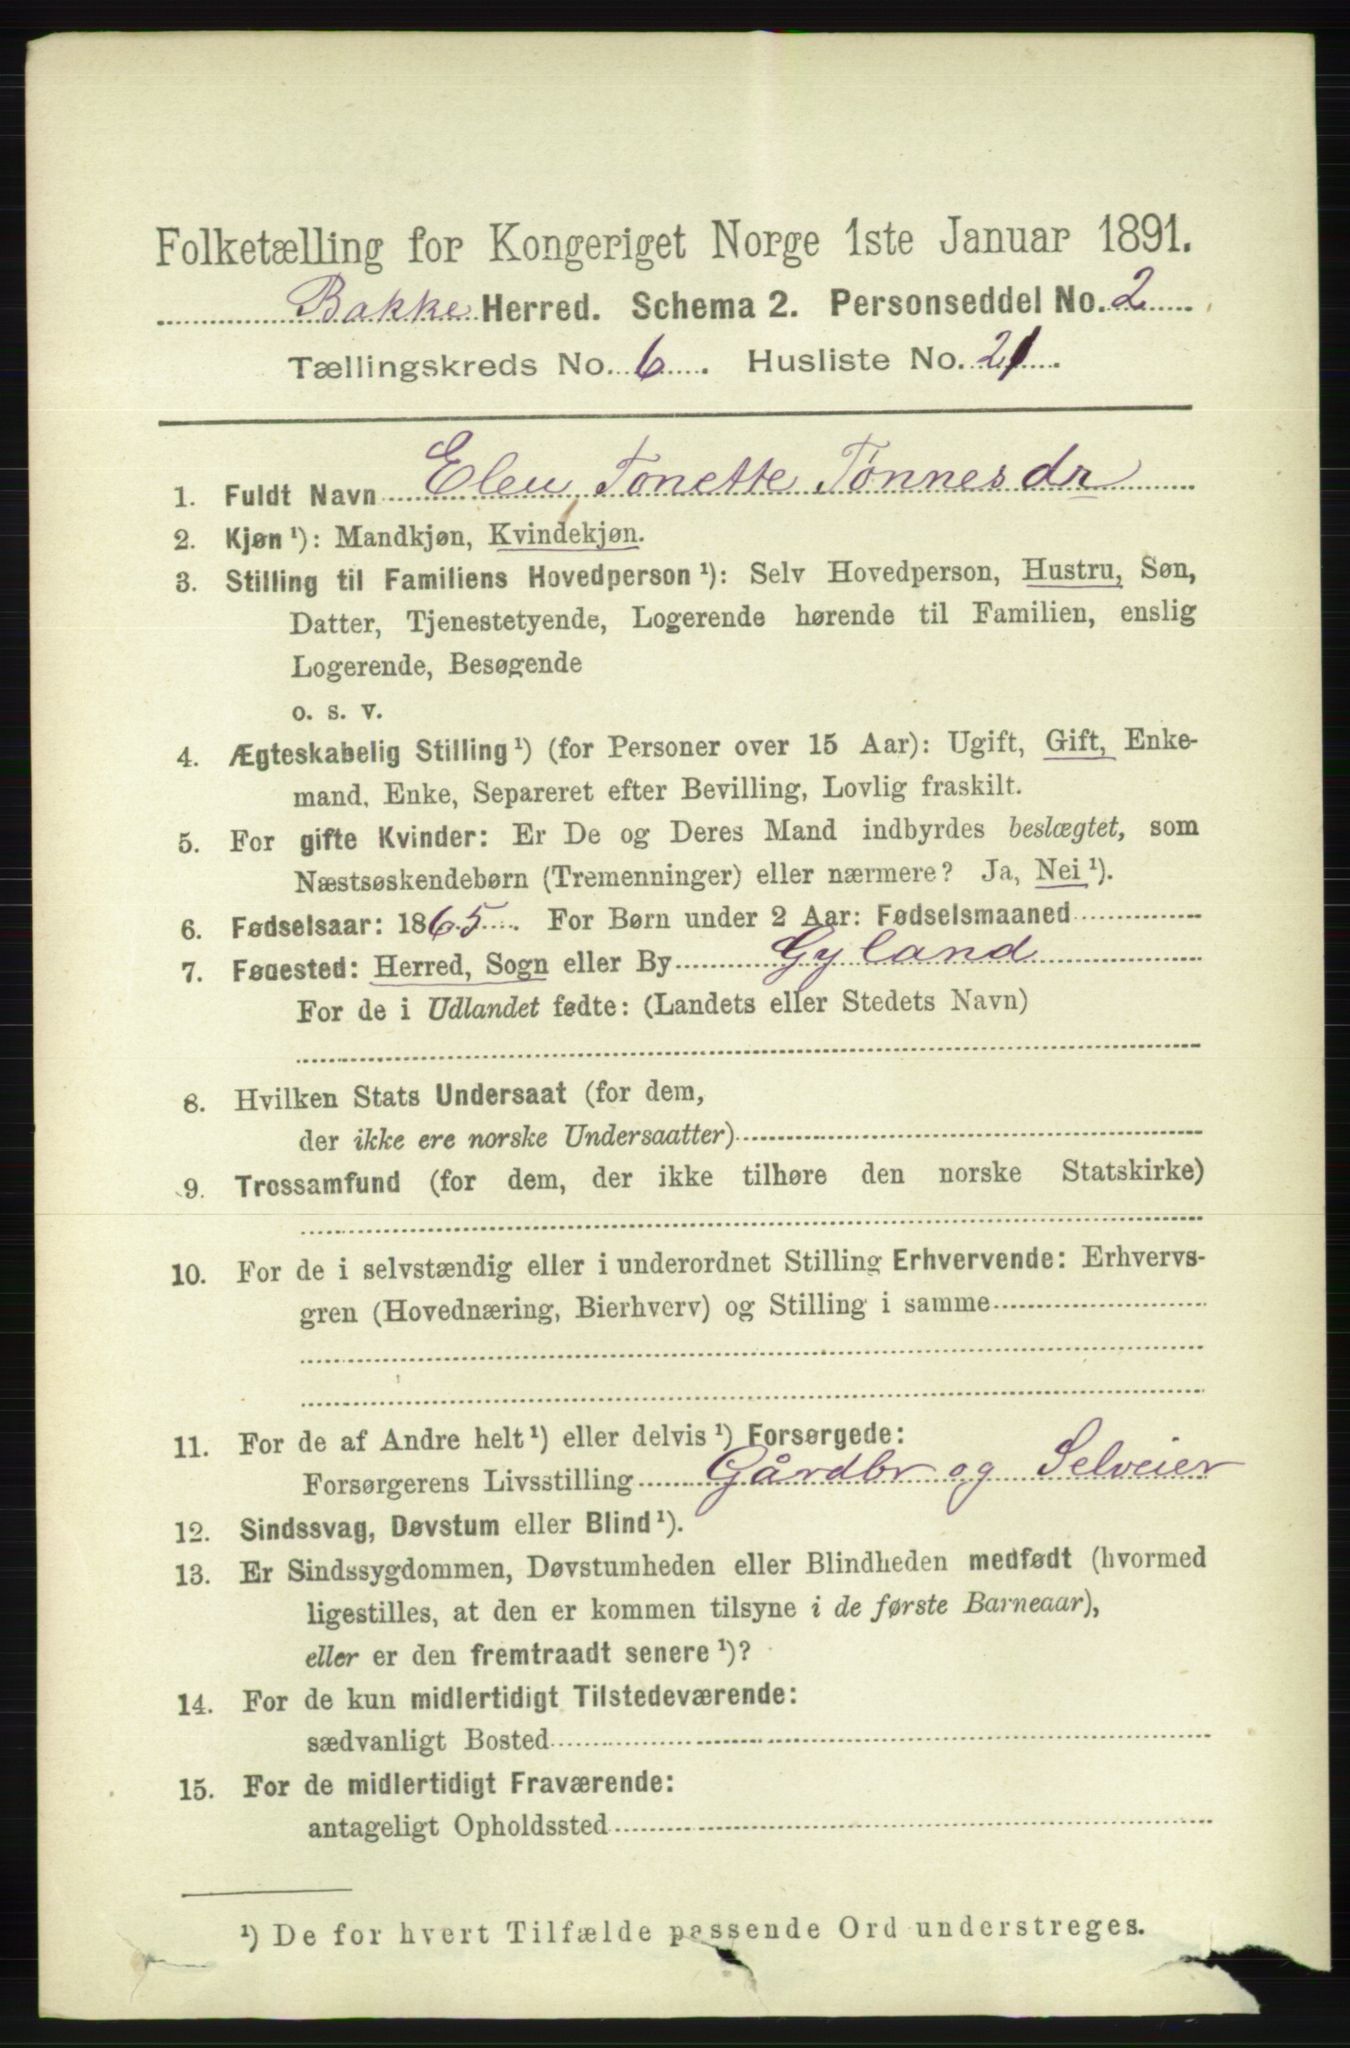 Folketælling for Kongeriget Norge 1ste Januar 1891.
Bakke Herred. Schema 2. Personseddel No. 2
Tællingskreds No. 6. Husliste No. 21.
1. Fuldt Navn Elen Tonette Tønnesdr
2. Kjøn ¹): Mandkjøn, Kvindekjøn.
3. Stilling til Familiens Hovedperson ¹): Selv Hovedperson, Hustru, Søn,
Datter, Tjenestetyende, Logerende hørende til Familien, enslig
Logerende, Besøgende
o. s. v.
4. Ægteskabelig Stilling ¹) (for Personer over 15 Aar): Ugift, Gift, Enke-
mand, Enke, Separeret efter Bevilling, Lovlig fraskilt.
5. For gifte Kvinder: Er De og Deres Mand indbyrdes beslægtet, som
Næstsøskendebørn (Tremenninger) eller nærmere? Ja, Nei ¹).
6. Fødselsaar: 1865. For Børn under 2 Aar: Fødselsmaaned
7. Fødested: Herred, Sogn eller By Gyland
For de i Udlandet fødte: (Landets eller Stedets Navn)
8. Hvilken Stats Undersaat (for dem,
der ikke ere norske Undersaatter)
9. Trossamfund (for dem, der ikke tilhøre den norske Statskirke)
10. For de i selvstændig eller i underordnet Stilling Erhvervende: Erhvervs-
gren (Hovednæring, Bierhverv) og Stilling i samme
11. For de af Andre helt ¹) eller delvis ¹) Forsørgede:
Forsørgerens Livsstilling Gårdbr og Selveier
12. Sindssvag, Døvstum eller Blind ¹).
13. Er Sindssygdommen, Døvstumheden eller Blindheden medfødt (hvormed
ligestilles, at den er kommen tilsyne i de første Barneaar),
eller er den fremtraadt senere ¹)?
14. For de kun midlertidigt Tilstedeværende:
sædvanligt Bosted
15. For de midlertidigt Fraværende:
antageligt Opholdssted
¹) De for hvert Tilfælde passende Ord understreges.